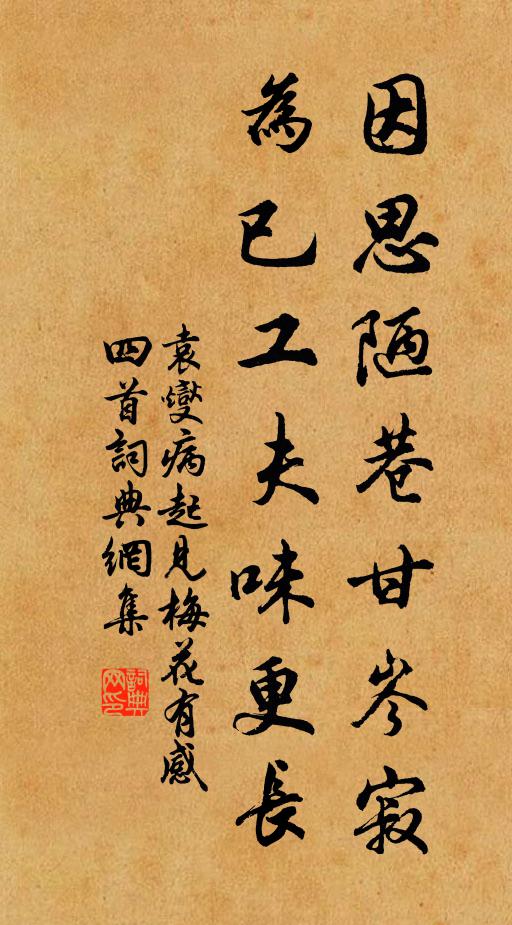 因思陋巷甘岑寂
為已工夫味更長
袁燮病起見梅花有感
四首詞典網集
詞典网印